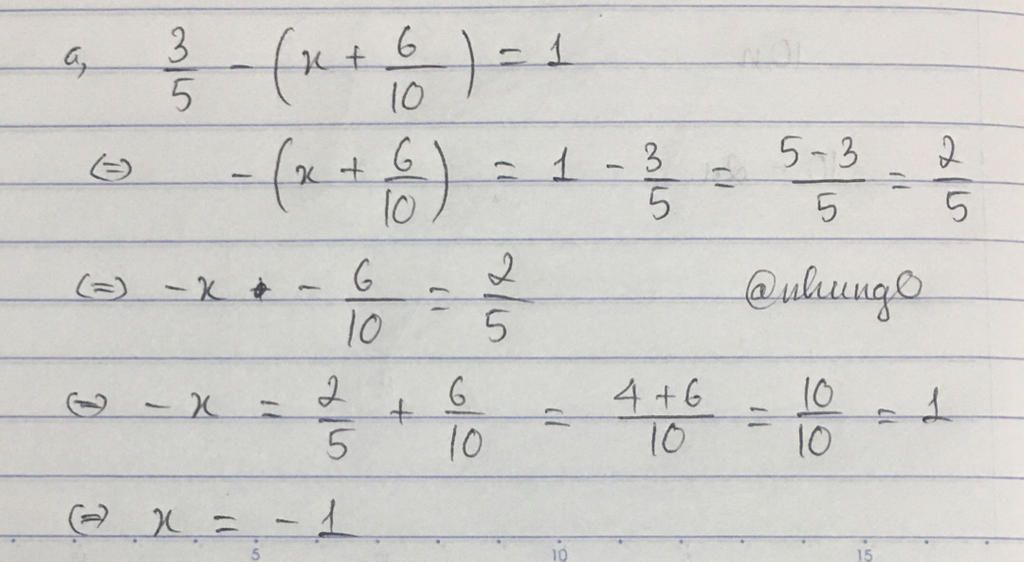 a, 3/5 - (x + 6/10) = 1
(=) - (x + 6/10) = 1 - 3/5 = 5-3/5 = 2/5
(=) -x - 6/10 = 2/5 @nhung0
(=) -x = 2/5 + 6/10 = 4+6/10 = 10/10 = 1
(=) x = -1
5 10 15